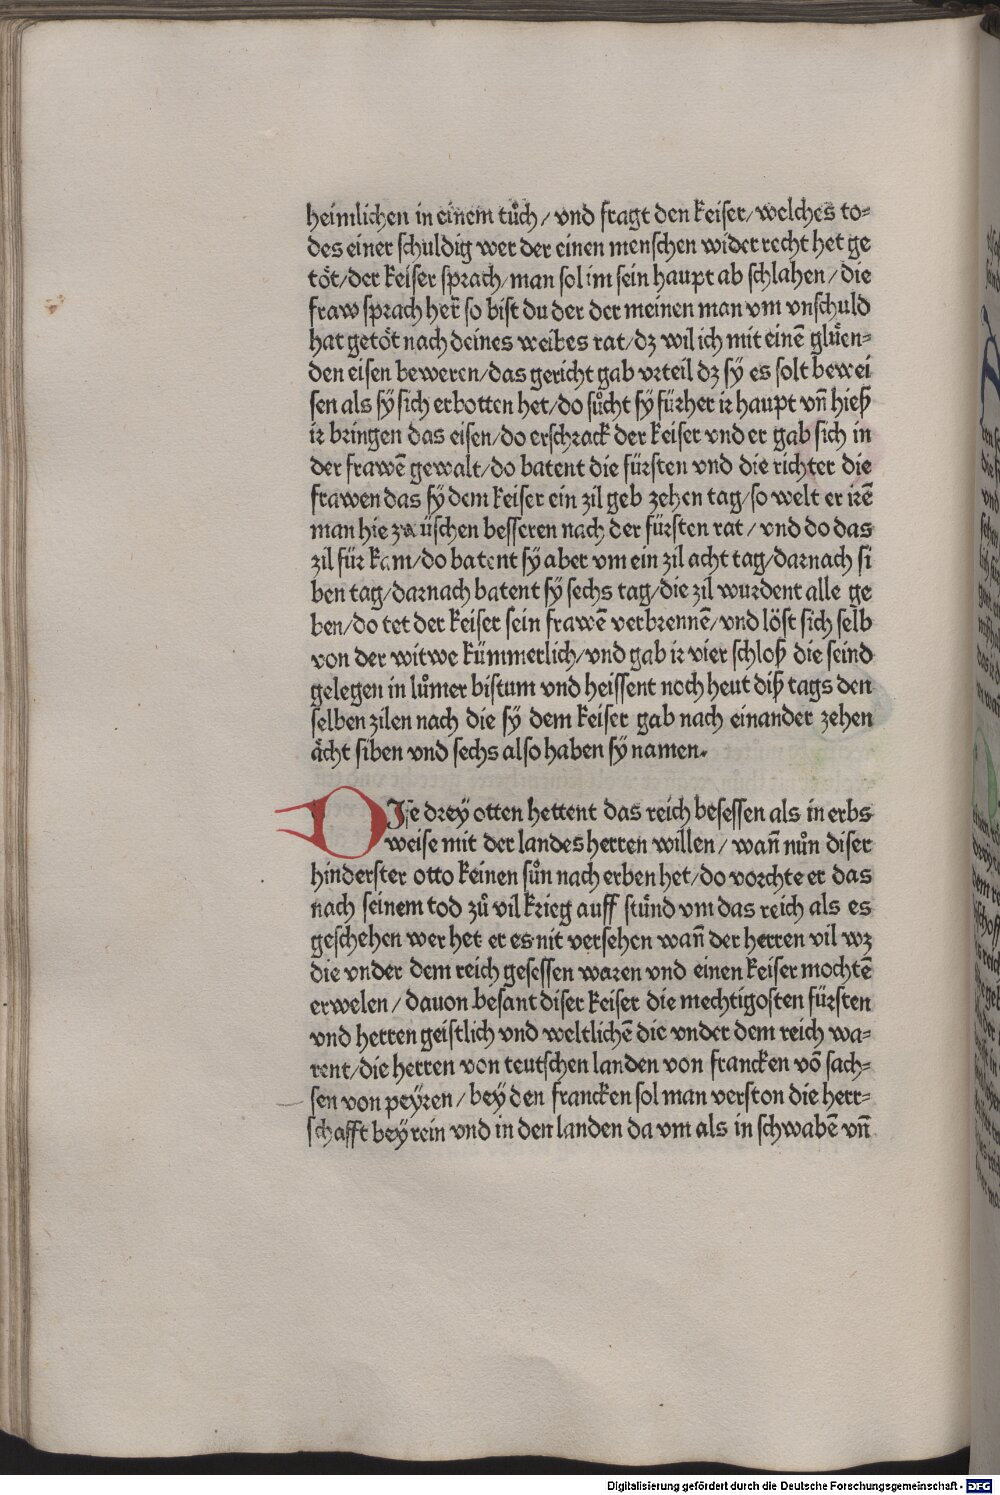 heimlichen in einem tůch/ vnd fragt den keiser/welches to⸗
des einer schuldig wer der einen menschen wider recht het ge
töt/der keiser sprach/man sol im sein haupt ab schlahen/die
fraw sprach her̃ so bist du der der meinen man vm vnschuld
hat getöt nach deines weibes rat/dz wil ich mit einē glüen⸗
den eisen beweren/das gericht gab vrteil dz sÿ es solt bewei
sen als sÿ sich erbotten het/do sůcht sÿ fürher ir haupt vñ hieß
ir bringen das eisen/do erschrack der keiser vnd er gab sich in
der frawē gewalt/do batent die fürsten vnd die richter die
frawen das sÿ dem keiser ein zil geb zehen tag/so welt er irē
man hie zwüschen besseren nach der fürsten rat/ vnd do das
zil für kam/do batent sÿ aber vm ein zil acht tag/darnach si
ben tag/darnach batent sÿ sechs tag/die zil wurdent alle ge
ben/do tet der keiser sein frawē verbrennē/vnd löst sich selb
von der witwe kümmerlich/vnd gab ir vier schloß die seind
gelegen in lůmer bistum vnd heissent noch heut diß tags den
selben zilen nach die sÿ dem keiser gab nach einander zehen
ächt siben vnd sechs also haben sÿ namen.
DIse dreÿ otten hettent das reich besessen als in erbs
weise mit der landes herren willen/ wañ nůn diser
hinderster otto keinen sůn nach erben het/do vorchte er das
nach seinem tod zů vil krieg auff stünd vm das reich als es
geschehen wer het er es nit versehen wañ der herren vil wz
die vnder dem reich gesessen waren vnd einen keiser mochtē
erwelen/ dauon besant diser keiser die mechtigosten fürsten
vnd herren geistlich vnd weltlichē die vnder dem reich wa⸗
rent/die herren von teutschen landen von francken vō sach⸗
sen von peÿren/beÿ den francken sol man verston die herr⸗
schafft beÿ rein vnd in den landen da vm als in schwabē vñ
Digitalisierung gefördert durch die Deutsche Forschungsgemeinschaft - DFG